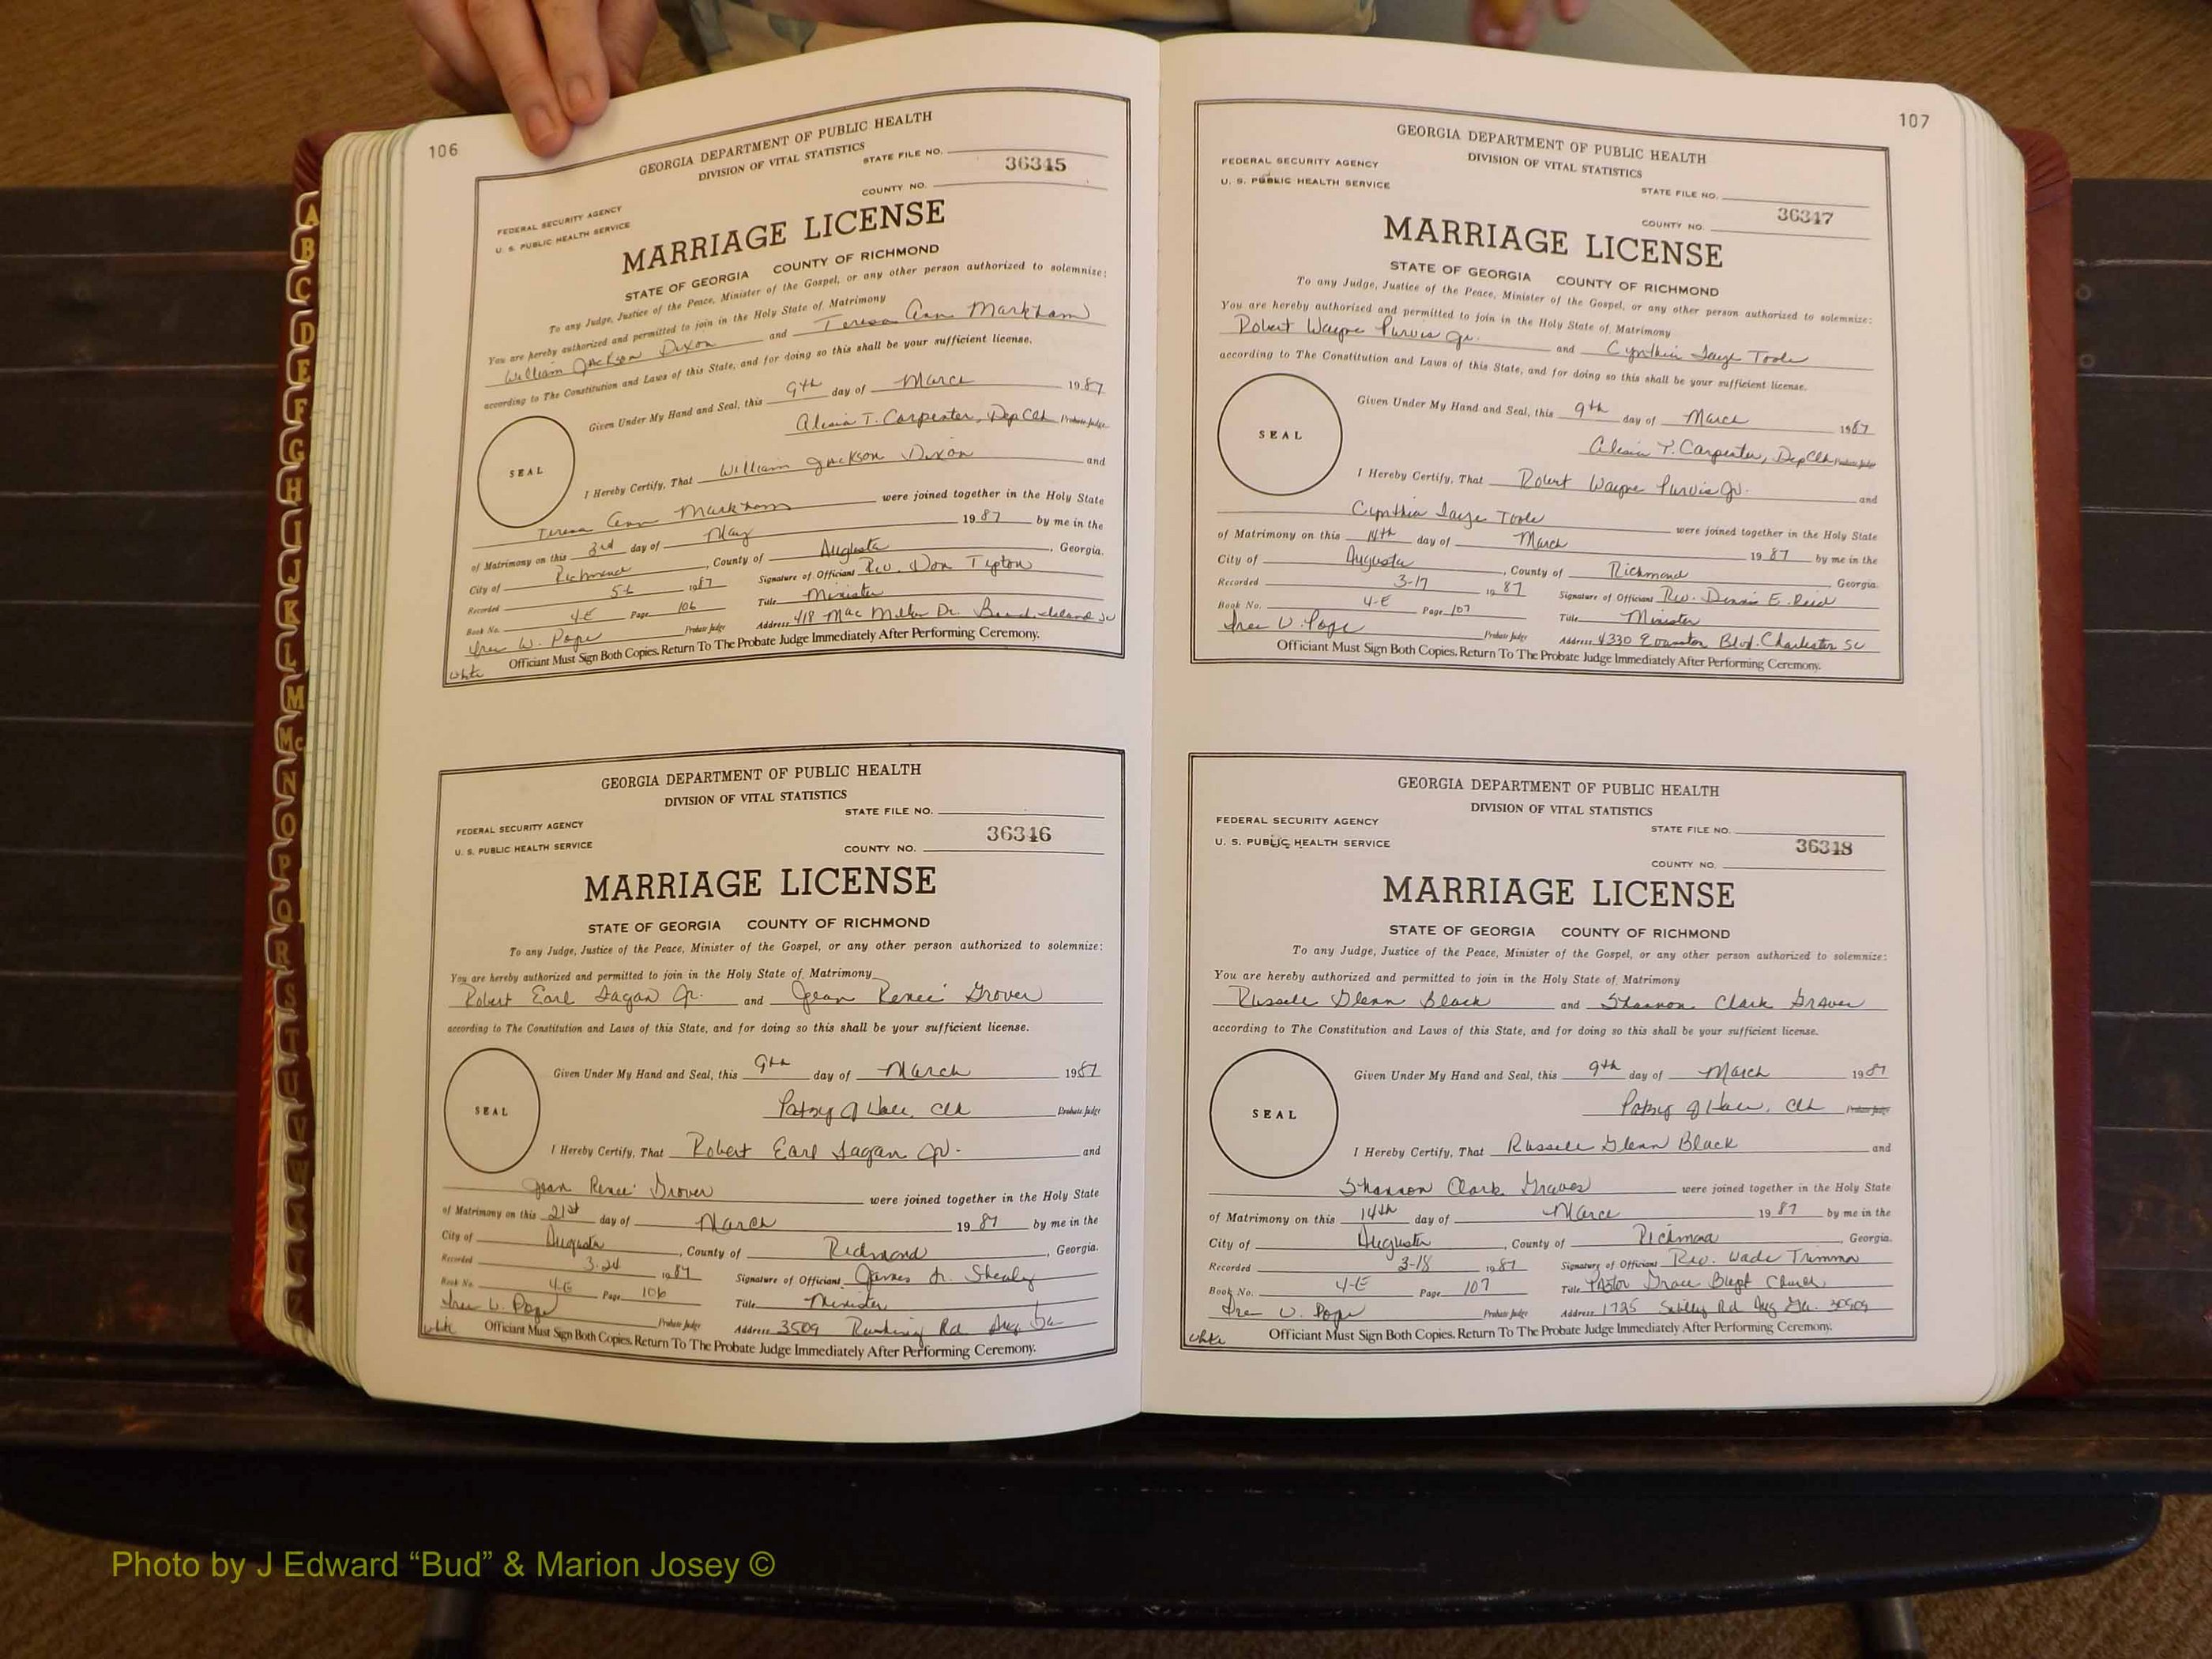 106
GEORGIA DEPARTMENT OF PUBLIC HEALTH
DIVISION OF VITAL STATISTICS
STATE FILE NO.
36345
FEDERAL SECURITY AGENCY
U. S. PUBLIC HEALTH SERVICE
COUNTY NO.
MARRIAGE LICENSE
STATE OF GEORGIA COUNTY OF RICHMOND
To any Judge, Justice of the Peace, Minister of the Gospel, or any other person authorized to solemnize:
You are hereby authorized and permitted to join in the Holy State of Matrimony
William Jackson Dixon and Teresa Ann Markham
according to The Constitution and Laws of this State, and for doing so this shall be your sufficient license.
Given Under My Hand and Seal, this 9th day of March 1987
Alesia T. Carpenter, Dep Clk Probate Judge
SEAL
I Hereby Certify, That William Jackson Dixon and
Teresa Ann Markham were joined together in the Holy State
of Matrimony on this 3rd day of May 1987 by me in the
City of Richmond, County of Augusta, Georgia.
Recorded 5-6 1987 Signature of Officiant Rev. Don Tipton
Book No. 4E Page 106 Title Minister
W. Pope Probate Judge Address 418 Mac Millan Dr.
Officiant Must Sign Both Copies. Return To The Probate Judge Immediately After Performing Ceremony.
White
GEORGIA DEPARTMENT OF PUBLIC HEALTH
DIVISION OF VITAL STATISTICS
STATE FILE NO.
FEDERAL SECURITY AGENCY
36346
U. S. PUBLIC HEALTH SERVICE
COUNTY NO.
MARRIAGE LICENSE
STATE OF GEORGIA COUNTY OF RICHMOND
To any Judge, Justice of the Peace, Minister of the Gospel, or any other person authorized to solemnize:
You are hereby authorized and permitted to join in the Holy State of Matrimony
Robert Earl Fagan Jr. and Jean Renee Grover
according to The Constitution and Laws of this State, and for doing so this shall be your sufficient license.
Given Under My Hand and Seal, this 9th day of March 1987
Patsy J Clk Probate Judge
SEAL
I Hereby Certify, That Robert Earl Fagan Jr. and
Jean Renee Grover were joined together in the Holy State
of Matrimony on this 21st day of March 1987 by me in the
City of Augusta, County of Richmond, Georgia.
Recorded 3-24 1987 Signature of Officiant James Shealy
Book No. 4-E Page 106 Title Minister
W. Pope Probate Judge Address 3509 Rd Aug Ga
Officiant Must Sign Both Copies. Return To The Probate Judge Immediately After Performing Ceremony.
White
107
GEORGIA DEPARTMENT OF PUBLIC HEALTH
DIVISION OF VITAL STATISTICS
FEDERAL SECURITY AGENCY
U. S. PUBLIC HEALTH SERVICE
STATE FILE NO.
36347
COUNTY NO.
MARRIAGE LICENSE
STATE OF GEORGIA COUNTY OF RICHMOND
To any Judge, Justice of the Peace, Minister of the Gospel, or any other person authorized to solemnize:
You are hereby authorized and permitted to join in the Holy State of Matrimony
Robert Wayne Purvis Jr. and Cynthia Faye Toole
according to The Constitution and Laws of this State, and for doing so this shall be your sufficient license.
Given Under My Hand and Seal, this 9th day of March 1987
Alesia T. Carpenter, Dep Clk Probate Judge
SEAL
I Hereby Certify, That Robert Wayne Purvis Jr. and
Cynthia Faye Toole were joined together in the Holy State
of Matrimony on this 14th day of March 1987 by me in the
City of Augusta, County of Richmond Georgia.
Recorded 3-17 1987 Signature of Officiant Rev. Dennis E. Reid
Book No. 4-E Page 107 Title Minister
W. Pope Probate Judge Address 4330 Evanston Blvd. Charleston SC
Officiant Must Sign Both Copies. Return To The Probate Judge Immediately After Performing Ceremony.
GEORGIA DEPARTMENT OF PUBLIC HEALTH
DIVISION OF VITAL STATISTICS
FEDERAL SECURITY AGENCY
STATE FILE NO.
U. S. PUBLIC HEALTH SERVICE
36348
COUNTY NO.
MARRIAGE LICENSE
STATE OF GEORGIA COUNTY OF RICHMOND
To any Judge, Justice of the Peace, Minister of the Gospel, or any other person authorized to solemnize:
You are hereby authorized and permitted to join in the Holy State of Matrimony
Russell Glenn Black and Shannon Clark Graves
according to The Constitution and Laws of this State, and for doing so this shall be your sufficient license.
Given Under My Hand and Seal, this 9th day of March 1987
Patsy J Clk Probate Judge
SEAL
I Hereby Certify, That Russell Glenn Black and
Shannon Clark Graves were joined together in the Holy State
of Matrimony on this 14th day of March 1987 by me in the
City of Augusta, County of Richmond, Georgia.
Recorded 3-18 1987 Signature of Officiant Rev. Wade Trimm
Book No. 4-E Page 107 Title Pastor Grace Bapt Church
W. Pope Probate Judge Address 1735 Rd Aug Ga. 30909
Officiant Must Sign Both Copies. Return To The Probate Judge Immediately After Performing Ceremony.
White
A
B
C
D
E
F
G
H
I
J
K
L
M
Mc
N
O
P
Q
R
S
T
U
V
W
Photo by J Edward “Bud” & Marion Josey ©